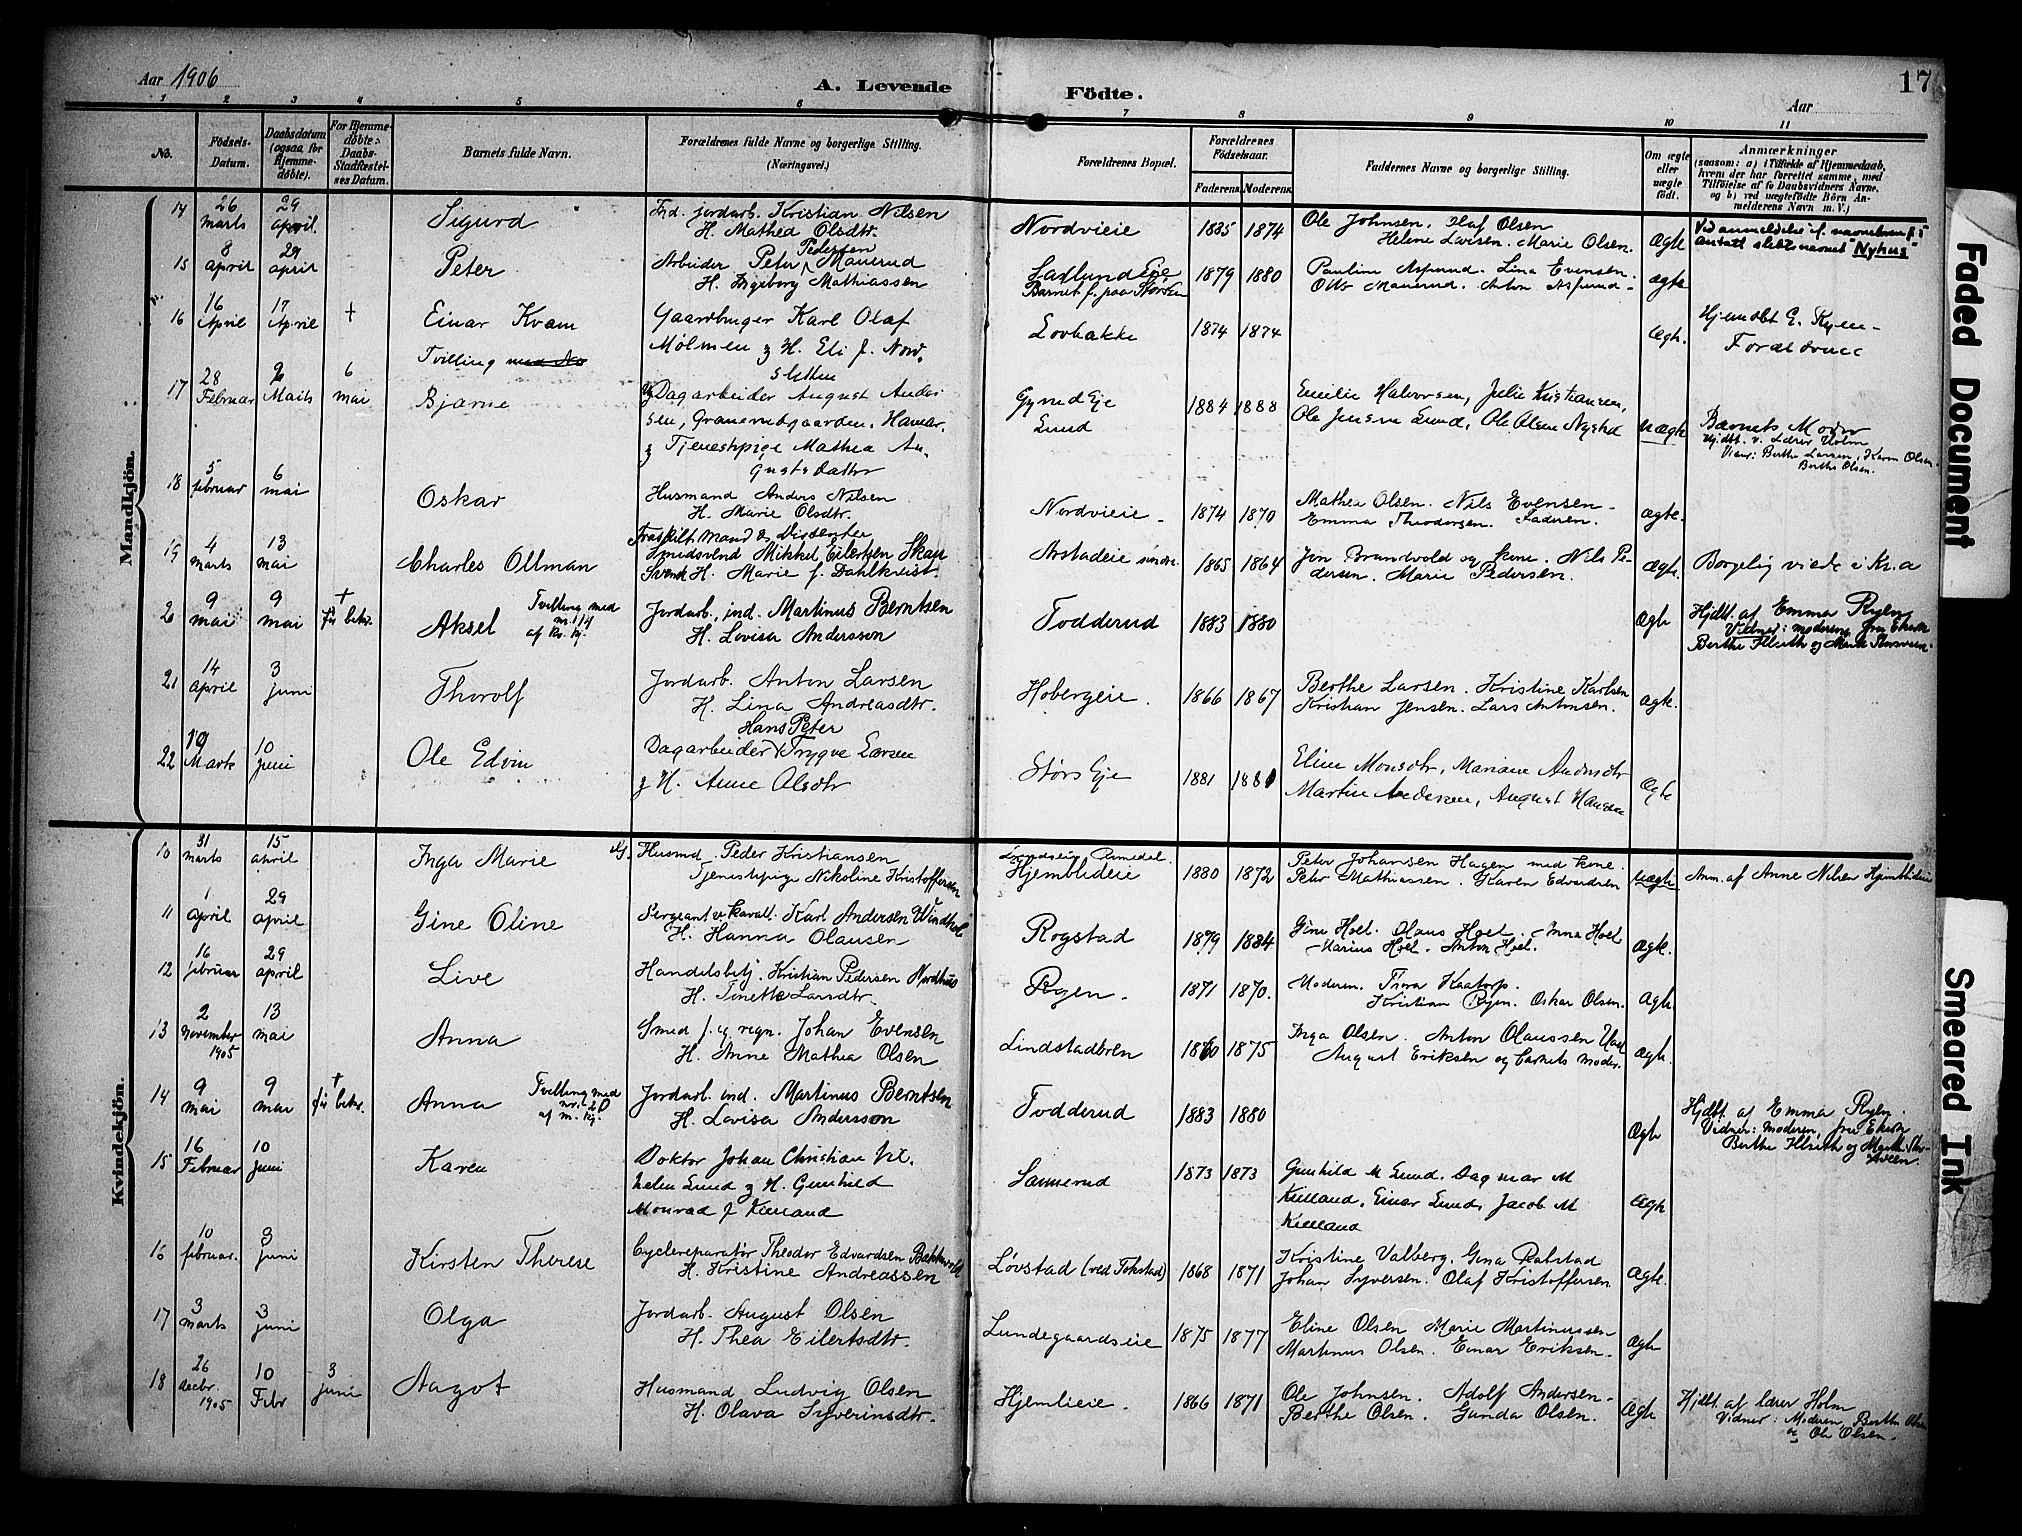 Aar 1906
A. Levende
Födte.
Aar
17
1 2 3 4 5 6 7 8 9 10 11
No.
Födsels-
Datum.
Daabsdatum
(ogsaa for
Hjemme-
döbte).
For Hjemme-
döbte:
Daabs-
Stadfæstel-
ses Datum.
Barnets fulde Navn.
Forældrenes fulde Navne og borgerlige Stilling.
(Næringsvei.)
Forældrenes Bopæl.
Forældrenes
Födselsaar.
Faderens. Moderens.
Faddernes Navne og borgerlige Stilling.
Om ægte
eller
uægte
födt.
Anmærkninger
(saasom: a) i Tilfælde af Hjemmedaab,
hvem der har forrettet samme, med
Tilföielse af to Daabsvidners Navne,
og b) ved uægtefödte Börn An-
melderens Navn m. V.)
Mandkjön.
14
26
marts
29
april
Sigurd
Ind. jordarb. Kristian Nilsen
H. Mathea Olsdtr.
Nordvieie
1835 1874
Ole Johnsen. Olaf Olsen
Helene Larsen. Marie Olsen.
Ægte
antatt slektsnavnet "Nyhus"
15
8
april
29
april
Peter
Pedersen
Arbeider Peter Mauerud
H. Ingeborg Mathiassen
Barnet f. paa
1879 1880
Pauline Asprud. Lina Evensen.
Otto Mauerud. Anton Asprud
ægte
16
16
April
17
April
+
Einar Kvam
Gaardbruger Karl Olaf
Mølmen og H. Eli f. Nord-
sletten
Lovbakke
1874 1874
Ægte.
Hjemdbt E. Ryen-
Forældrene
Tvilling med No
17
28
Februar
Marts
6
mai
Bjarne
Dagarbeider August Ander
sen, Granerudgaarden, Hamar,
og Tjenestpige Mathea Au-
gustsdatter
Eje
Lund
1884 1888
Emilie Halvorsen, Julie Kristiansen,
Ole Jensen Lund, Ole Olsen Nysted
Uægte
Barnets Moder
Hjdbt. v. Lærer Holm
Vidner: Berthe Larsen, Karen Olsen
Berthe Olsen.
18
5
februar
6
mai
Oskar
Husmand Anders Nilsen
H. Marie Olsdtr.
Nordvieie
1874 1870
Mathea Olsen. Nils Evensen
Emma Theodorsen. Faderen.
ægte.
19
4
marts
13
mai
Charles Ottman
Fraskilt mand & Dissenter
Smedsvend Mikkel Eilertsen Skau
Svensk H. Marie f. Dahlkvist.
Arstadeie søndre
1865 1864
Jon Brandvold og kone. Nils Pe-
dersen. Marie Pedersen.
ægte.
Borgelig viede i Kr.a
20
9
mai
9
mai
+
før bekr.
Aksel
Tvilling med
nr. 14
af kv. kj.
Jordarb. ind. Martinus Berntsen
H. Lovisa Andersson
Todderud
1883 1880
Ægte
Hjdbt. af Emma Ryen
Vidner: moderen, fru
Berthe Ilseth og
21
14
april
3
juni
Thorolf
Jordarb. Anton Larsen
H. Lina Andreasdtr.
Hobergeie.
1866 1867
Berthe Larsen. Kristine Karlsen
Kristian Jensen. Lars Antonsen.
ægte.
22
19
Marts
10
Juni
Ole Edvin
Hans Peter
Dagarbeider Trygve Larsen
og H. Anne Olsdtr
Størs Eje
1881 1880
Eline Monsdtr, Mariane Andersdtr
Martin Andersen, August Hansen
Ægte
Kvindekjön.
10
31
marts
15
april
Inga Marie
G. Husmd. Peder Kristiansen
Tjenestpige Nikoline Kristoffersen
Hjemblideie
1880 1872
Peter Johansen Hagen med kone
Petr Mathiassen. Karen Edvardsen
uægte
Anm. af Anne Nilsen Hjemblideie
11
1
april
29
april
Gine Oline
Sergeant v. kavall. Karl Andersen Windhol
H. Hanna Olausen
Rogstad
1879 1884
Gine Hoel. Olaus Hoel. Anna Hoel
Marius Hoel. Anton Hoel.
Ægte.
12
16
februar
29
april
Live
Handelsbetj. Kristian Pedersen Nordhus
H. Tinette Larsdtr.
Ryen.
1871 1870.
Moderen. Thora Kaatorp.
Kristian Ryen. Oskar Olsen.
Ægte
13
2
November
1905
13
mai
Anna
Smed f. eg. regn. Johan Evensen
H. Anne Mathea Olsen
Lindstadbren
1870 1875
Inga Olsen. Anton Olaussen
August Eriksen og barnets moder.
Ægte.
14
9
mai
9
mai
+
før bekr.
Anna
Tvilling med
nr. 20
af m. kj.
Jordarb. ind. Martinus Berntsen
H. Lovisa Andersson
Todderud
1883 1880
Ægte
Hjdbt. af Emma Ryen.
Vidner: moderen, fru
Berthe Ilseth og
15
16
Februar
10
Juni
Karen
Doktor Johan Christian Vil.
helm Lund og H. Gunhild
Monrad f Kielland
Sannerud
1873 1873
Gunhild M Lund. Dagmar M
Kielland, Einar Lund, Jacob M
Kielland
Ægte
16
10
februar.
3
juni
Kirsten Therese
Cyclereparatør Theodor Edvardsen Bakkevold
H. Kristine Andreassen
Løvstad (ved Tokstad)
1868 1871
Kristine Valberg. Gina Ralstad
Johan Syversen. Olaf Kristoffersen
Ægte.
17
3
marts
3
juni
Olga
Jordarb. August Olsen
H. Thea Eilertsdtr.
Lundegaardseie
1875 1877
Eline Olsen Marie Martinussen
Martinus Olsen. Einar Eriksen.
Ægte
18
26
decbr.
1905
10
Febr
3
juni
Aagot
Husmand Ludvig Olsen
H. Olava Syverinsdtr.
Hjemlieie.
1866 1871
Ole Johnsen. Adolf Andersen
Berthe Olsen. Gunda Olsen.
Ægte
Hjdbt. af lærer Holm
Vidner: Moderen, Berthe Olsen
og Ole Olsen.
Faded Document
Smeared Ink